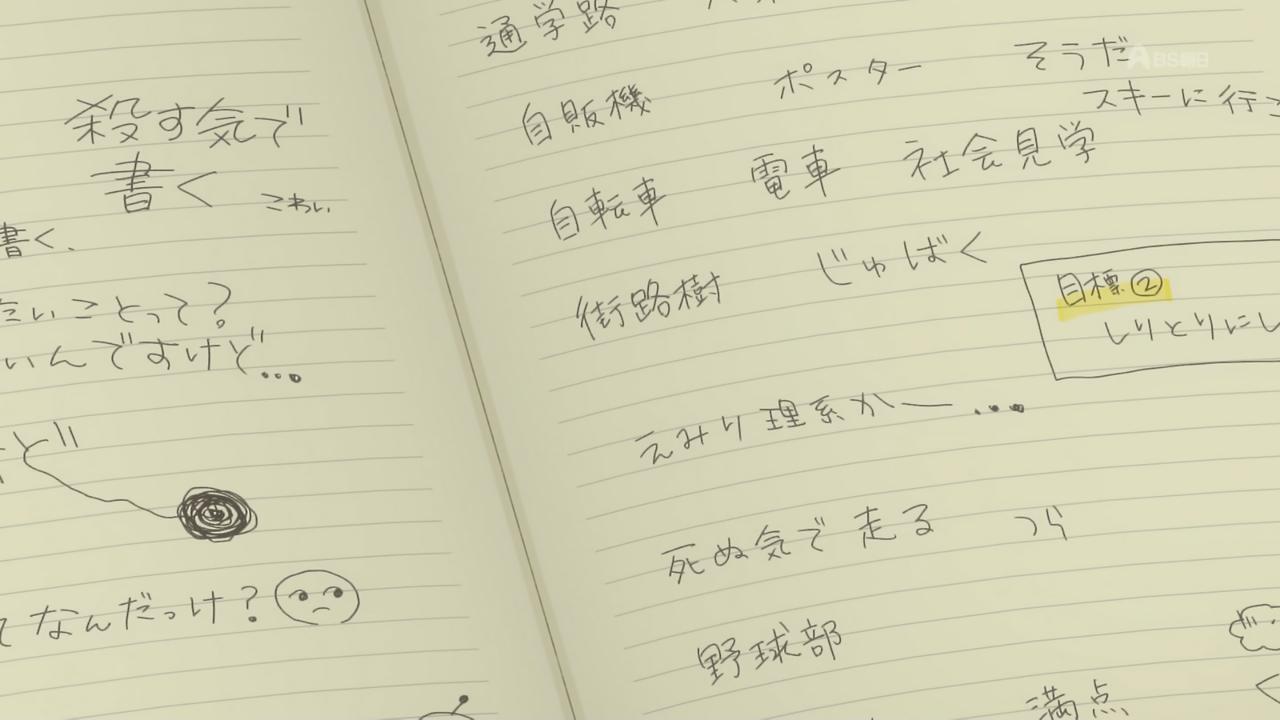 殺す気で
書く こわい
書く、
いことって?
いんですけど...
ど
なんだっけ?
通学路
自販機 ポスター そうだ
スキーに行こ
自転車 電車 社会見学
街路樹 じゅばく
目標②
しりとりにし
えみり理系かー...
死ぬ気で走る つら
野球部
満点
BS朝日